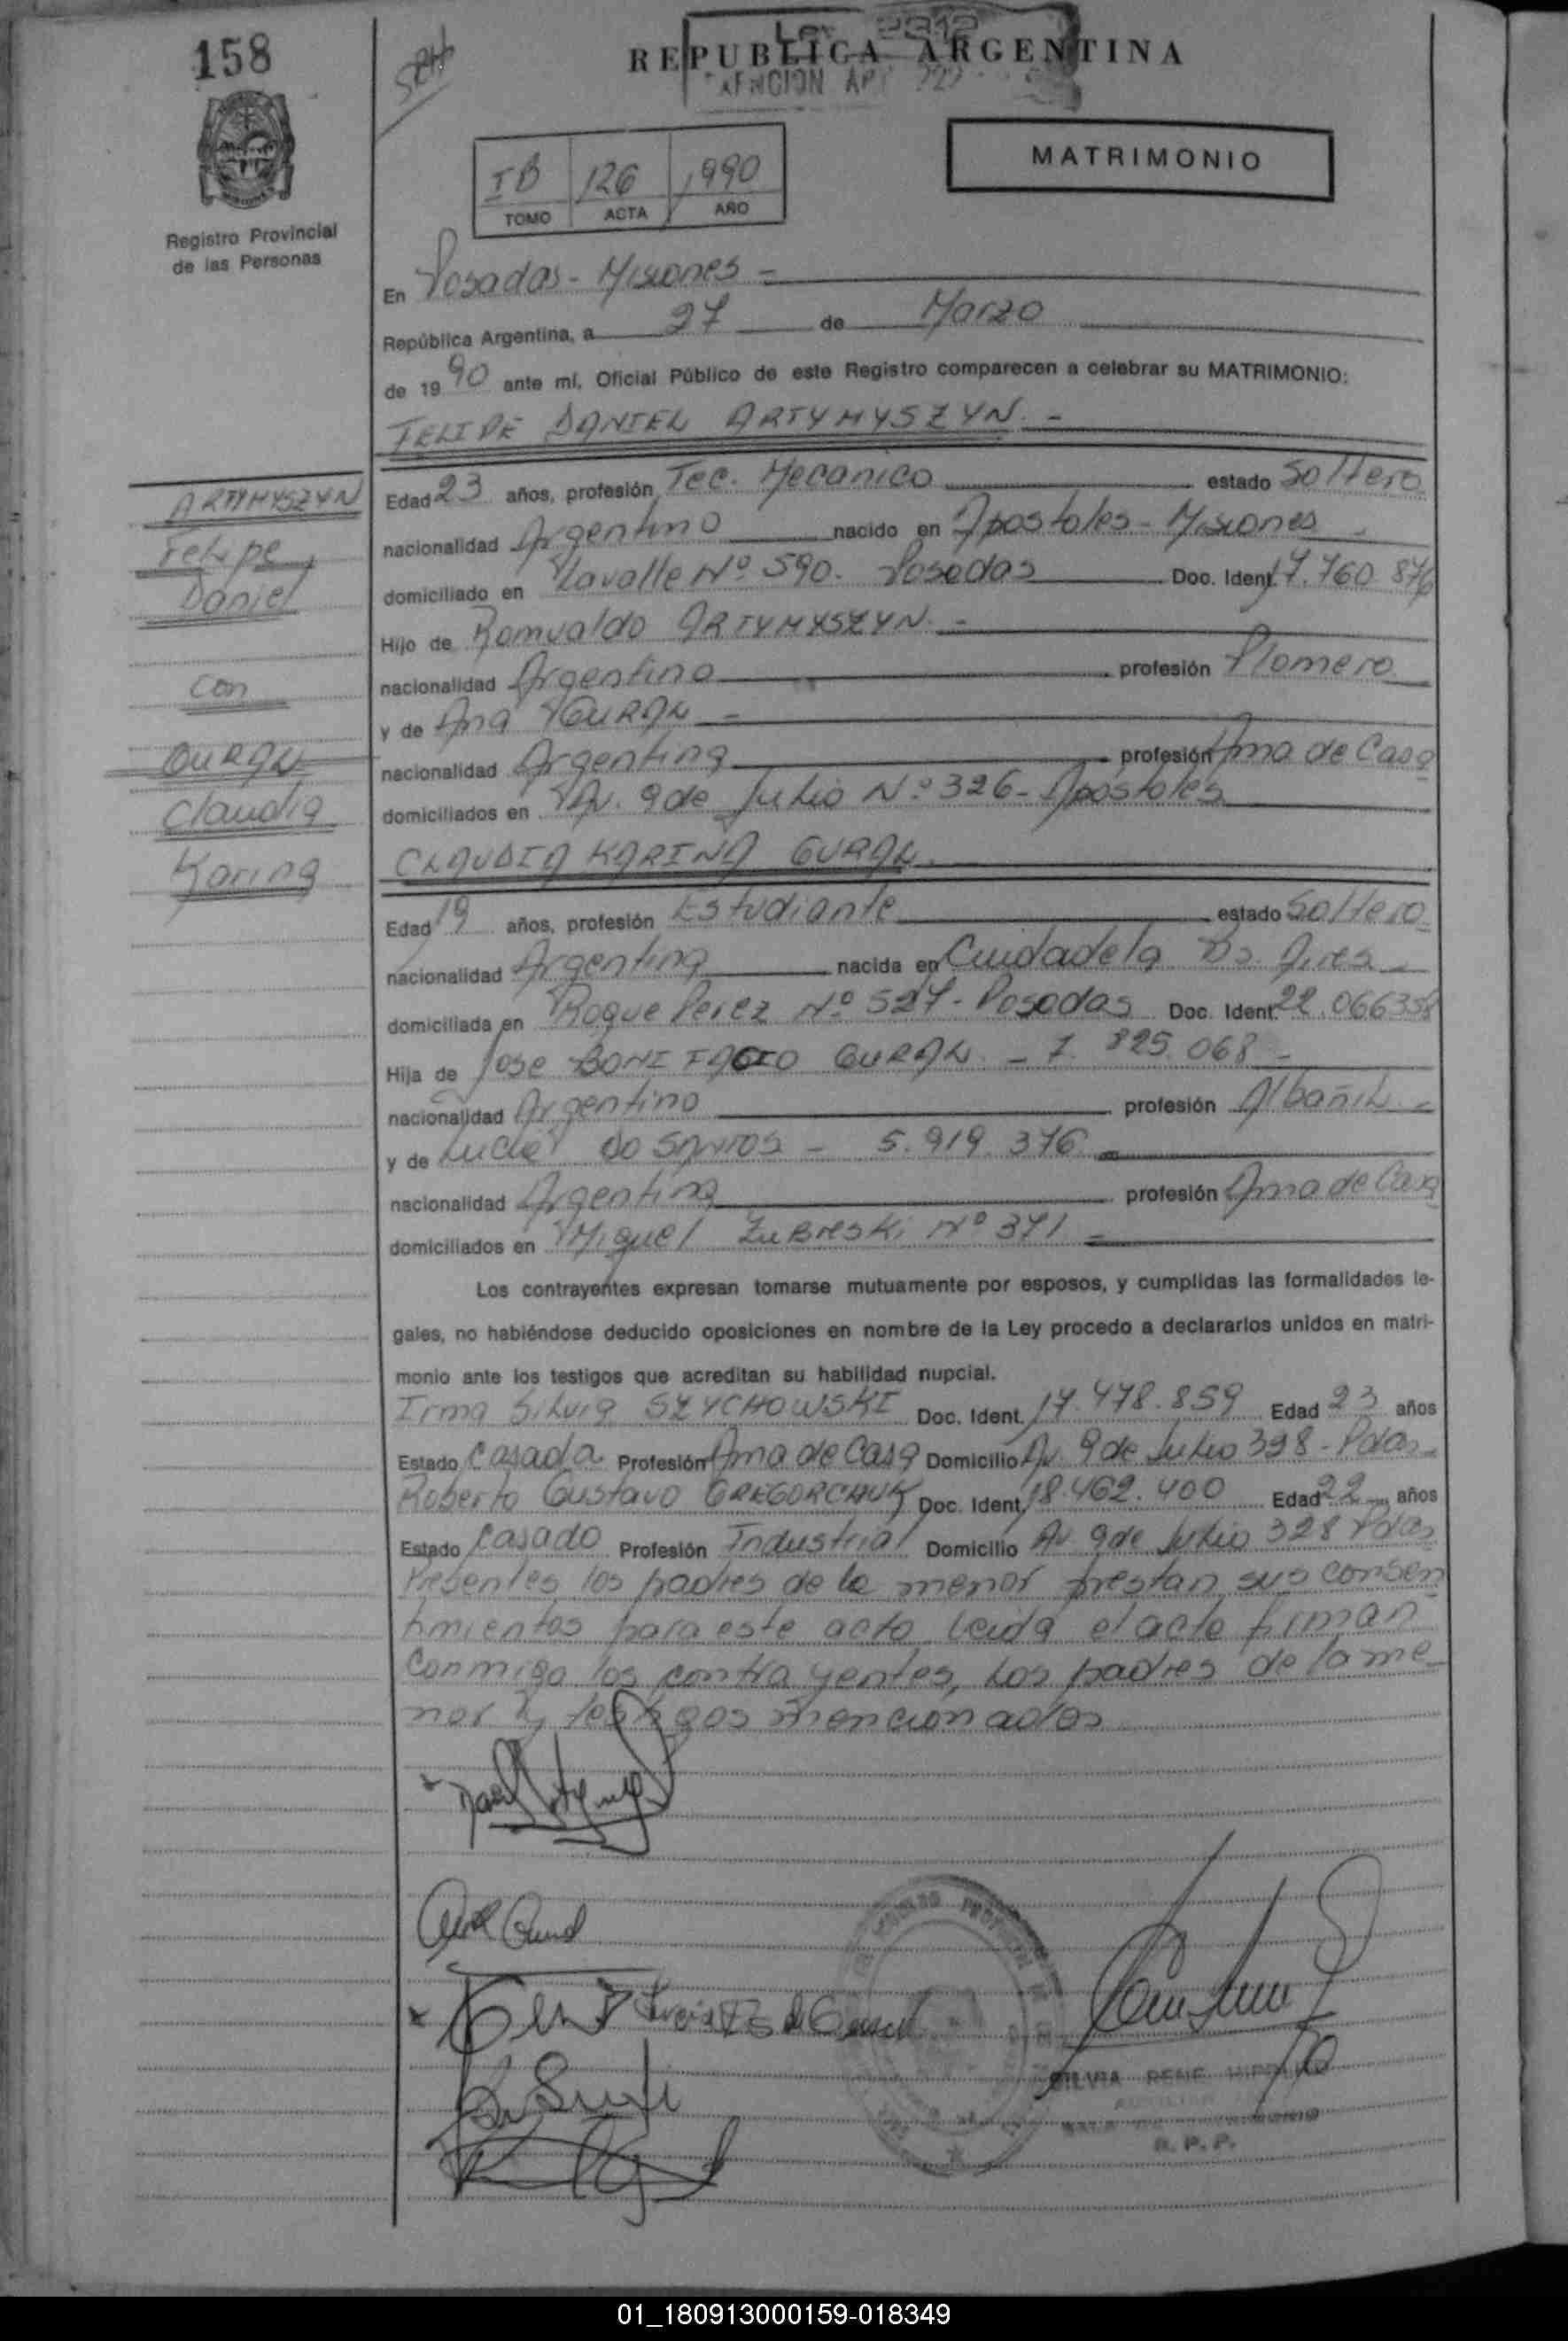 158
REPUBLICA ARGENTINA
Registro Provincial
de las Personas
I B 126 1990
TOMO ACTA AÑO
MATRIMONIO
En Posadas - Misiones -
República Argentina, a 27 de Marzo
de 1990 ante mí, Oficial Público de este Registro comparecen a celebrar su MATRIMONIO:
FELIPE DANIEL ARTYMYSZYN. -
ARTYMYSZYN
Felipe
Daniel
con
GURAL
Claudia
Karina
Edad 23 años, profesión Tec. Mecanico estado Soltero
nacionalidad Argentino nacido en Apostoles - Misiones
domiciliado en Lavalle Nº 590. Posadas Doc. Ident. 17.760.876
Hijo de Romualdo ARTYMYSZYN. -
nacionalidad Argentino profesión Plomero
y de Ana GURAL -
nacionalidad Argentina profesión Ama de Casa
domiciliados en Av. 9 de Julio Nº 326 - Apostoles
CLAUDIA KARINA GURAL.
Edad 19 años, profesión Estudiante estado Soltero
nacionalidad Argentina nacida en Cuidadela Bs. Aires
domiciliada en Roque Perez Nº 527 - Posadas Doc. Ident. 22.066358
Hija de Jose BONIFACIO GURAL - 7.825.068 -
nacionalidad Argentino profesión Albañil -
y de Lucia DO SANTOS - 5.919.376
nacionalidad Argentina profesión Ama de Casa
domiciliados en Miguel ZuBreski Nº 371 -
Los contrayentes expresan tomarse mutuamente por esposos, y cumplidas las formalidades le-
gales, no habiéndose deducido oposiciones en nombre de la Ley procedo a declararlos unidos en matri-
monio ante los testigos que acreditan su habilidad nupcial.
Irma Silvia SZYCHOWSKI Doc. Ident. 17.478.859 Edad 23 años
Estado Casada Profesión Ama de Casa Domicilio Av 9 de Julio 328 - Pdas
Roberto Gustavo GREGORCHUK Doc. Ident. 18.462.400 Edad 22 años
Estado Casado Profesión Industrial Domicilio Av 9 de Julio 328 Pdas
Presentes los padres de la menor prestan sus consen
timientos para este acto leida el acta firman
conmigo los contrayentes, los padres de la me
nor y testigos mencionados
SILVIA RENE
R. P. P.
01_180913000159-018349